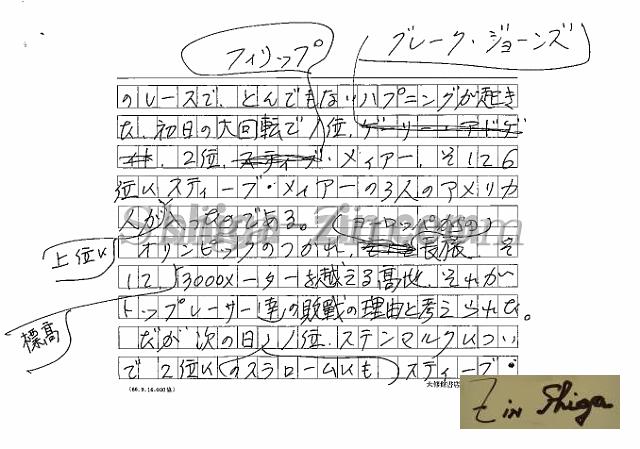 フィリップ
ブレーク・ジョーンズ
のレースで、とんでもないハプニングが起き
た。初日の大回転で1位、
2位、・メイアー、そして6
位にスティーブ・メイアーの3人のアメリカ
人が入ったのである。
上位に
オリンピックのつかれ、長旅、そ
(ヨーロッパからの)
して、3000メーターを越える高地、それが
標高
トップレーサー達の敗戦の理由と考えられた。
だが次の日、1位、ステンマルクについ
で2位に(のスラロームにも)スティーブ・
(66.9.16.000協)
大修館書店
Shiga Zin.com
Z in Shiga